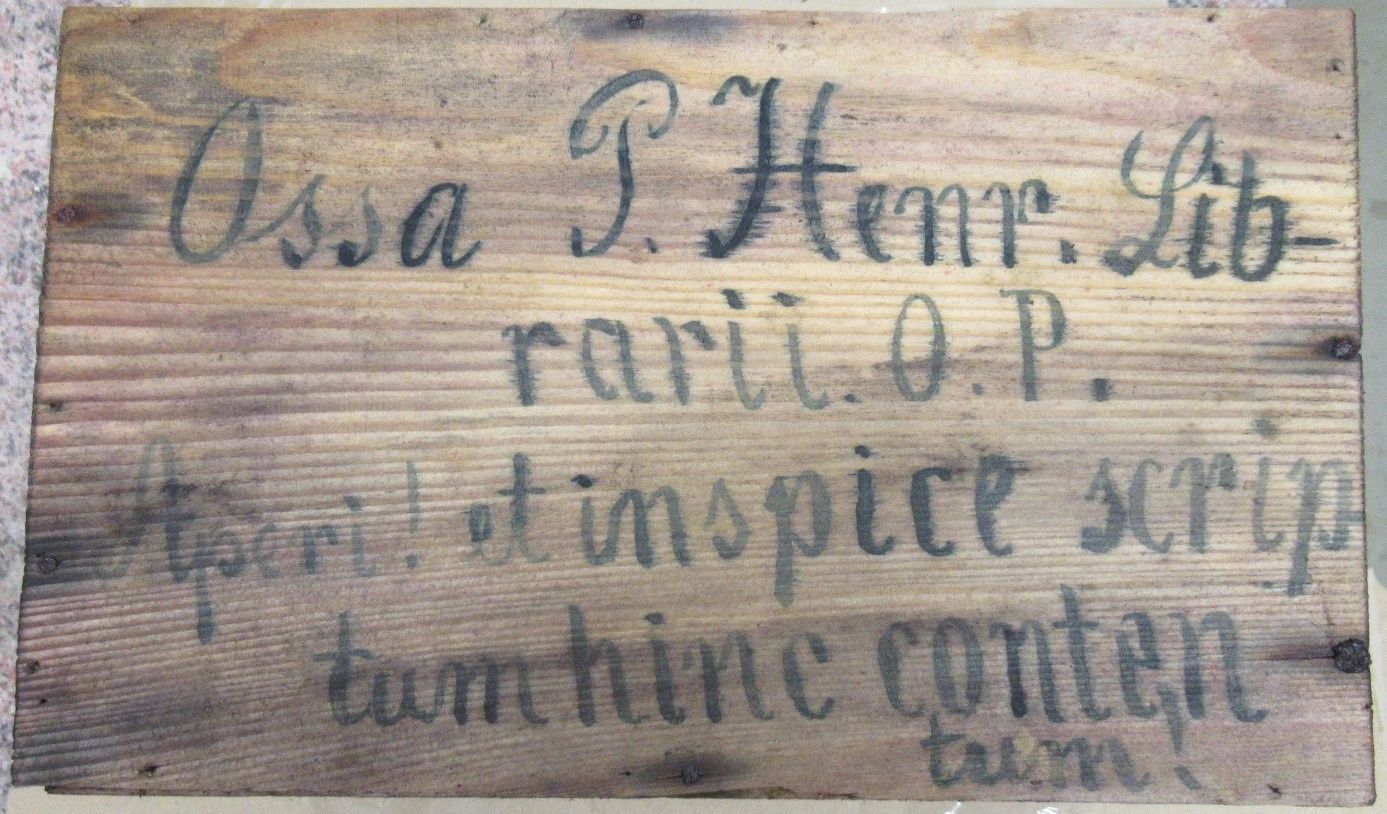 Ossa P. Henr. Lib-
rarii. O. P.
Aperi! et inspice scrip
tum hinc conten
tum!